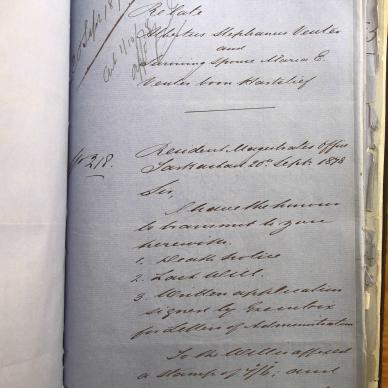 20 Sept 18
Re Late
Albertus Stephanus Venter
and
Surviving Spouse Maria E.
Venter born Hartelief
No 218.
Resident Magistrates Office
Tarkastad 20th Sept. 1878
Sir,
I have the honour
to transmit to you
herewith.
1. Death Notice
2. Last Will.
3. Written application
signed by Executrix
for Letters of Administration
To the Will is affixed
a stamp of 7/6, and